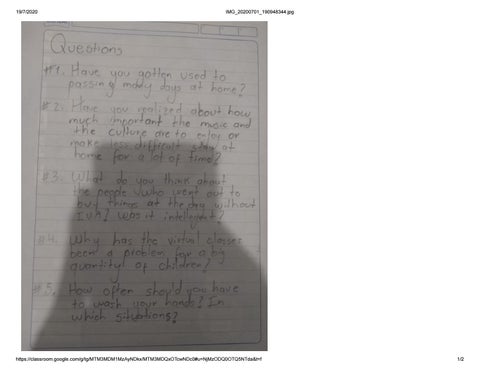 19/7/2020
IMG_20200701_190948344.jpg
Questions
#1. Have you gotten used to
passing many days at home?
#2. Have you realized about how
much important the music and
the culture are to enjoy or
make less difficult stay at
home for a lot of time?
#3. What do you think about
the people who went out to
buy things at the day without
IVA? Was it intelligent?
#4. Why has the virtual classes
been a problem for a big
quantity of children?
#5. How often should you have
to wash your hands? In
which situations?
1/2